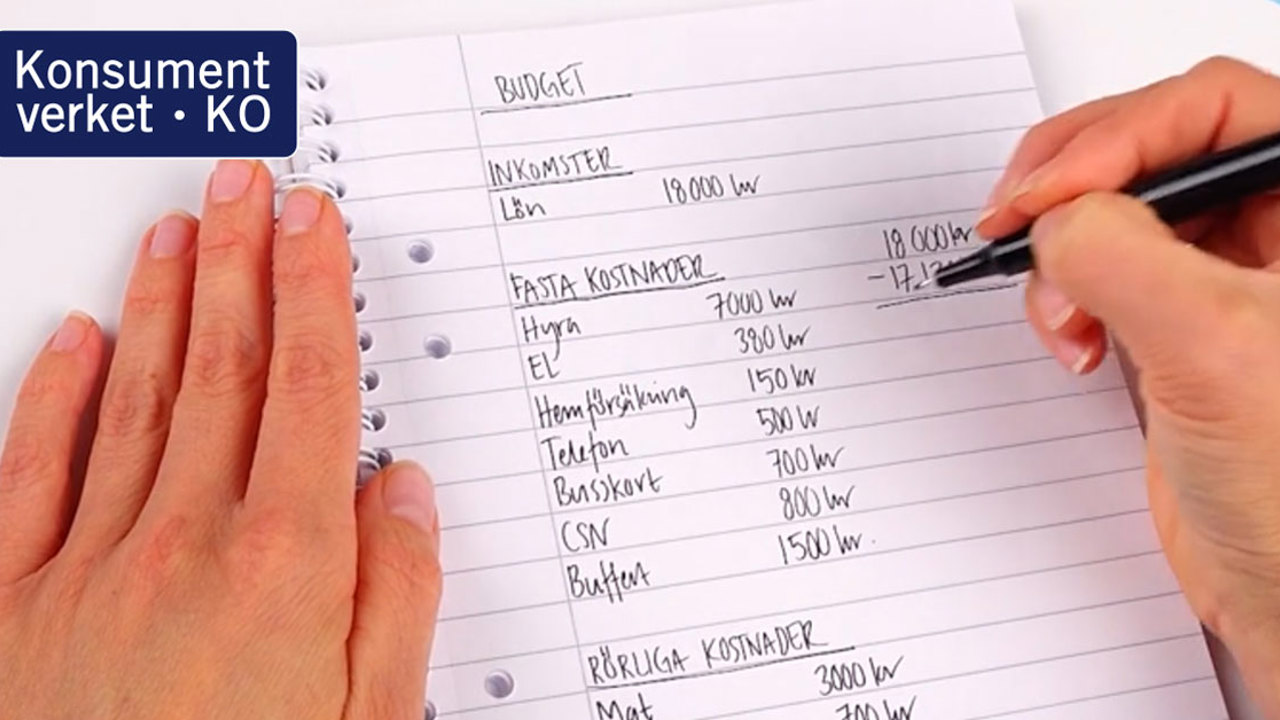 Konsument
verket • KO
BUDGET
INKOMSTER
Lön 18000 kr
FASTA KOSTNADER
Hyra 7000 kr
EL 380 kr
Hemförsäkring 150 kr
Telefon 500 kr
Busskort 700 kr
CSN 800 kr
Buffert 1500 kr.
18 000 kr
RÖRLIGA KOSTNADER
Mat 3000 kr
700 kr